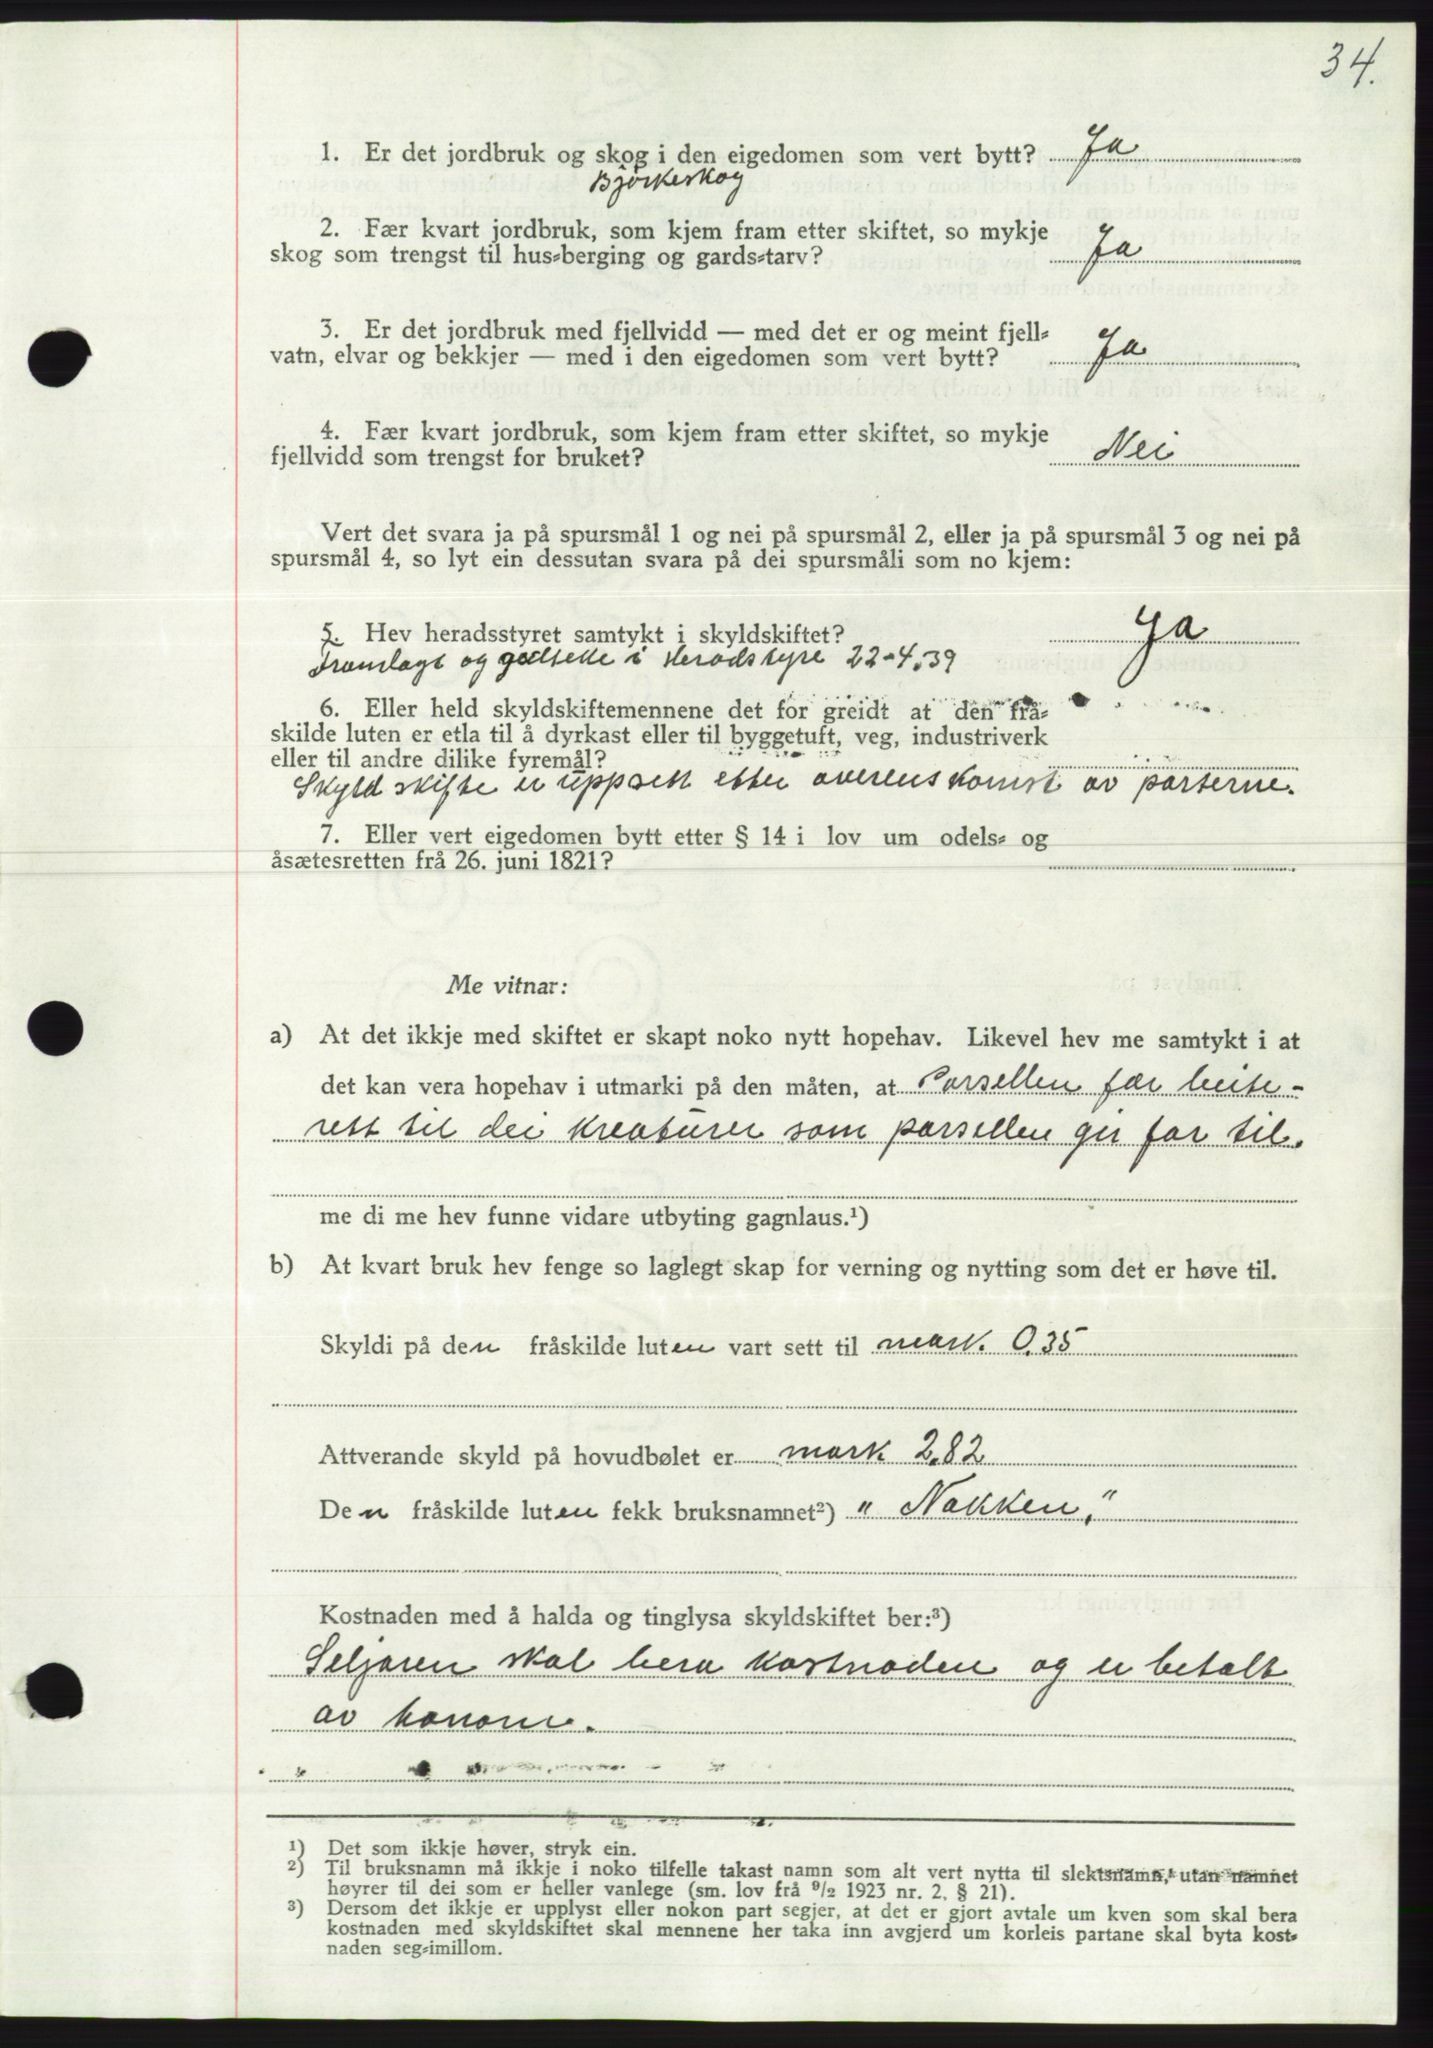 34.
1. Er det jordbruk og skog i den eigedomen som vert bytt? Ja
Björkeskog
2. Fær kvart jordbruk, som kjem fram etter skiftet, so mykje
skog som trengst til hus-berging og gards-tarv? Ja
3. Er det jordbruk med fjellvidd — med det er og meint fjell-
vatn, elvar og bekkjer — med i den eigedomen som vert bytt? Ja
4. Fær kvart jordbruk, som kjem fram etter skiftet, so mykje
fjellvidd som trengst for bruket? Nei
Vert det svara ja på spursmål 1 og nei på spursmål 2, eller ja på spursmål 3 og nei på
spursmål 4, so lyt ein dessutan svara på dei spursmåli som no kjem:
5. Hev heradsstyret samtykt i skyldskiftet? Ja
Framlagt og godteke i Heradstyre 22-4.39
6. Eller held skyldskiftemennene det for greidt at den frå-
skilde luten er etla til å dyrkast eller til byggetuft, veg, industriverk
eller til andre dilike fyremål?
Skyldskifte er uppsett etter overenskomst av parterne.
7. Eller vert eigedomen bytt etter § 14 i lov um odels- og
åsætesretten frå 26. juni 1821?
Me vitnar:
a) At det ikkje med skiftet er skapt noko nytt hopehav. Likevel hev me samtykt i at
det kan vera hopehav i utmarki på den måten, at Parsellen fær beite-
rett til dei kreaturer som parsellen gir for til.
me di me hev funne vidare utbyting gagnlaus.¹)
b) At kvart bruk hev fenge so laglegt skap for verning og nytting som det er høve til.
Skyldi på den fråskilde luten vart sett til mark. 0.35
Attverande skyld på hovudbølet er mark 2.82
Den fråskilde luten fekk bruksnamnet²) " Nakken,"
Kostnaden med å halda og tinglysa skyldskiftet ber:³)
Seljaren skal bera kostnaden og er betalt
av honom.
¹) Det som ikkje høver, stryk ein.
²) Til bruksnamn må ikkje i noko tilfelle takast namn som alt vert nytta til slektsnamn, utan namnet
høyrer til dei som er heller vanlege (sm. lov frå 9/2 1923 nr. 2, § 21).
³) Dersom det ikkje er upplyst eller nokon part segjer, at det er gjort avtale um kven som skal bera
kostnaden med skyldskiftet skal mennene her taka inn avgjerd um korleis partane skal byta kost-
naden seg-imillom.